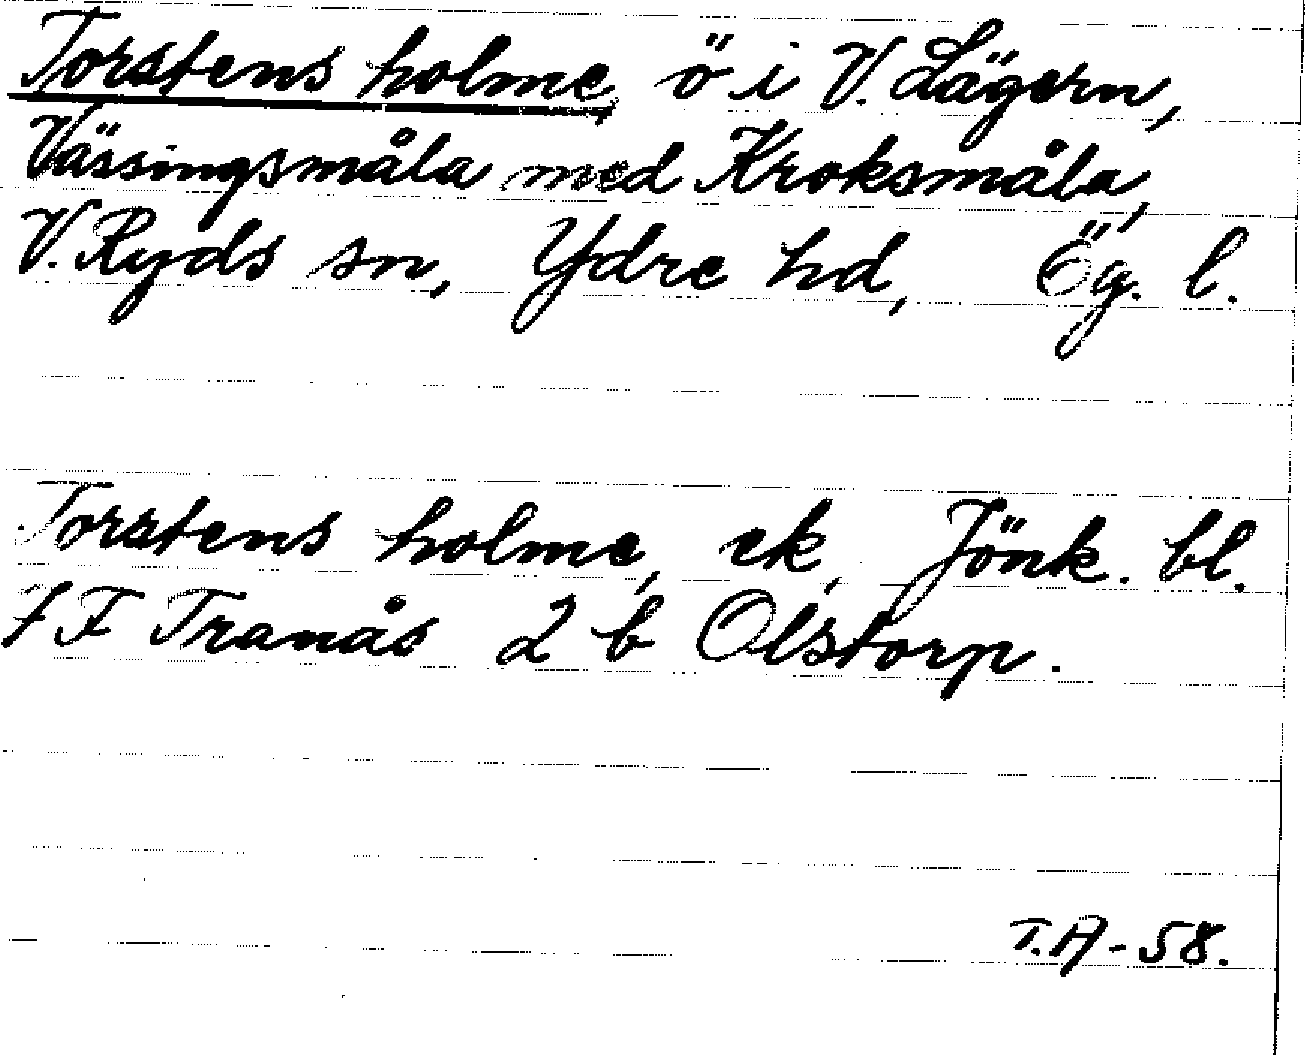 Torstens holme, ö i V. Lägern,
Vässingsmåla med Kroksmåla,
V. Ryds sn, Ydre hd, Ög. l.
Torstens holme, ek, Jönk. bl.
7 F Tranås 2 b Olstorp.
T.A-58.